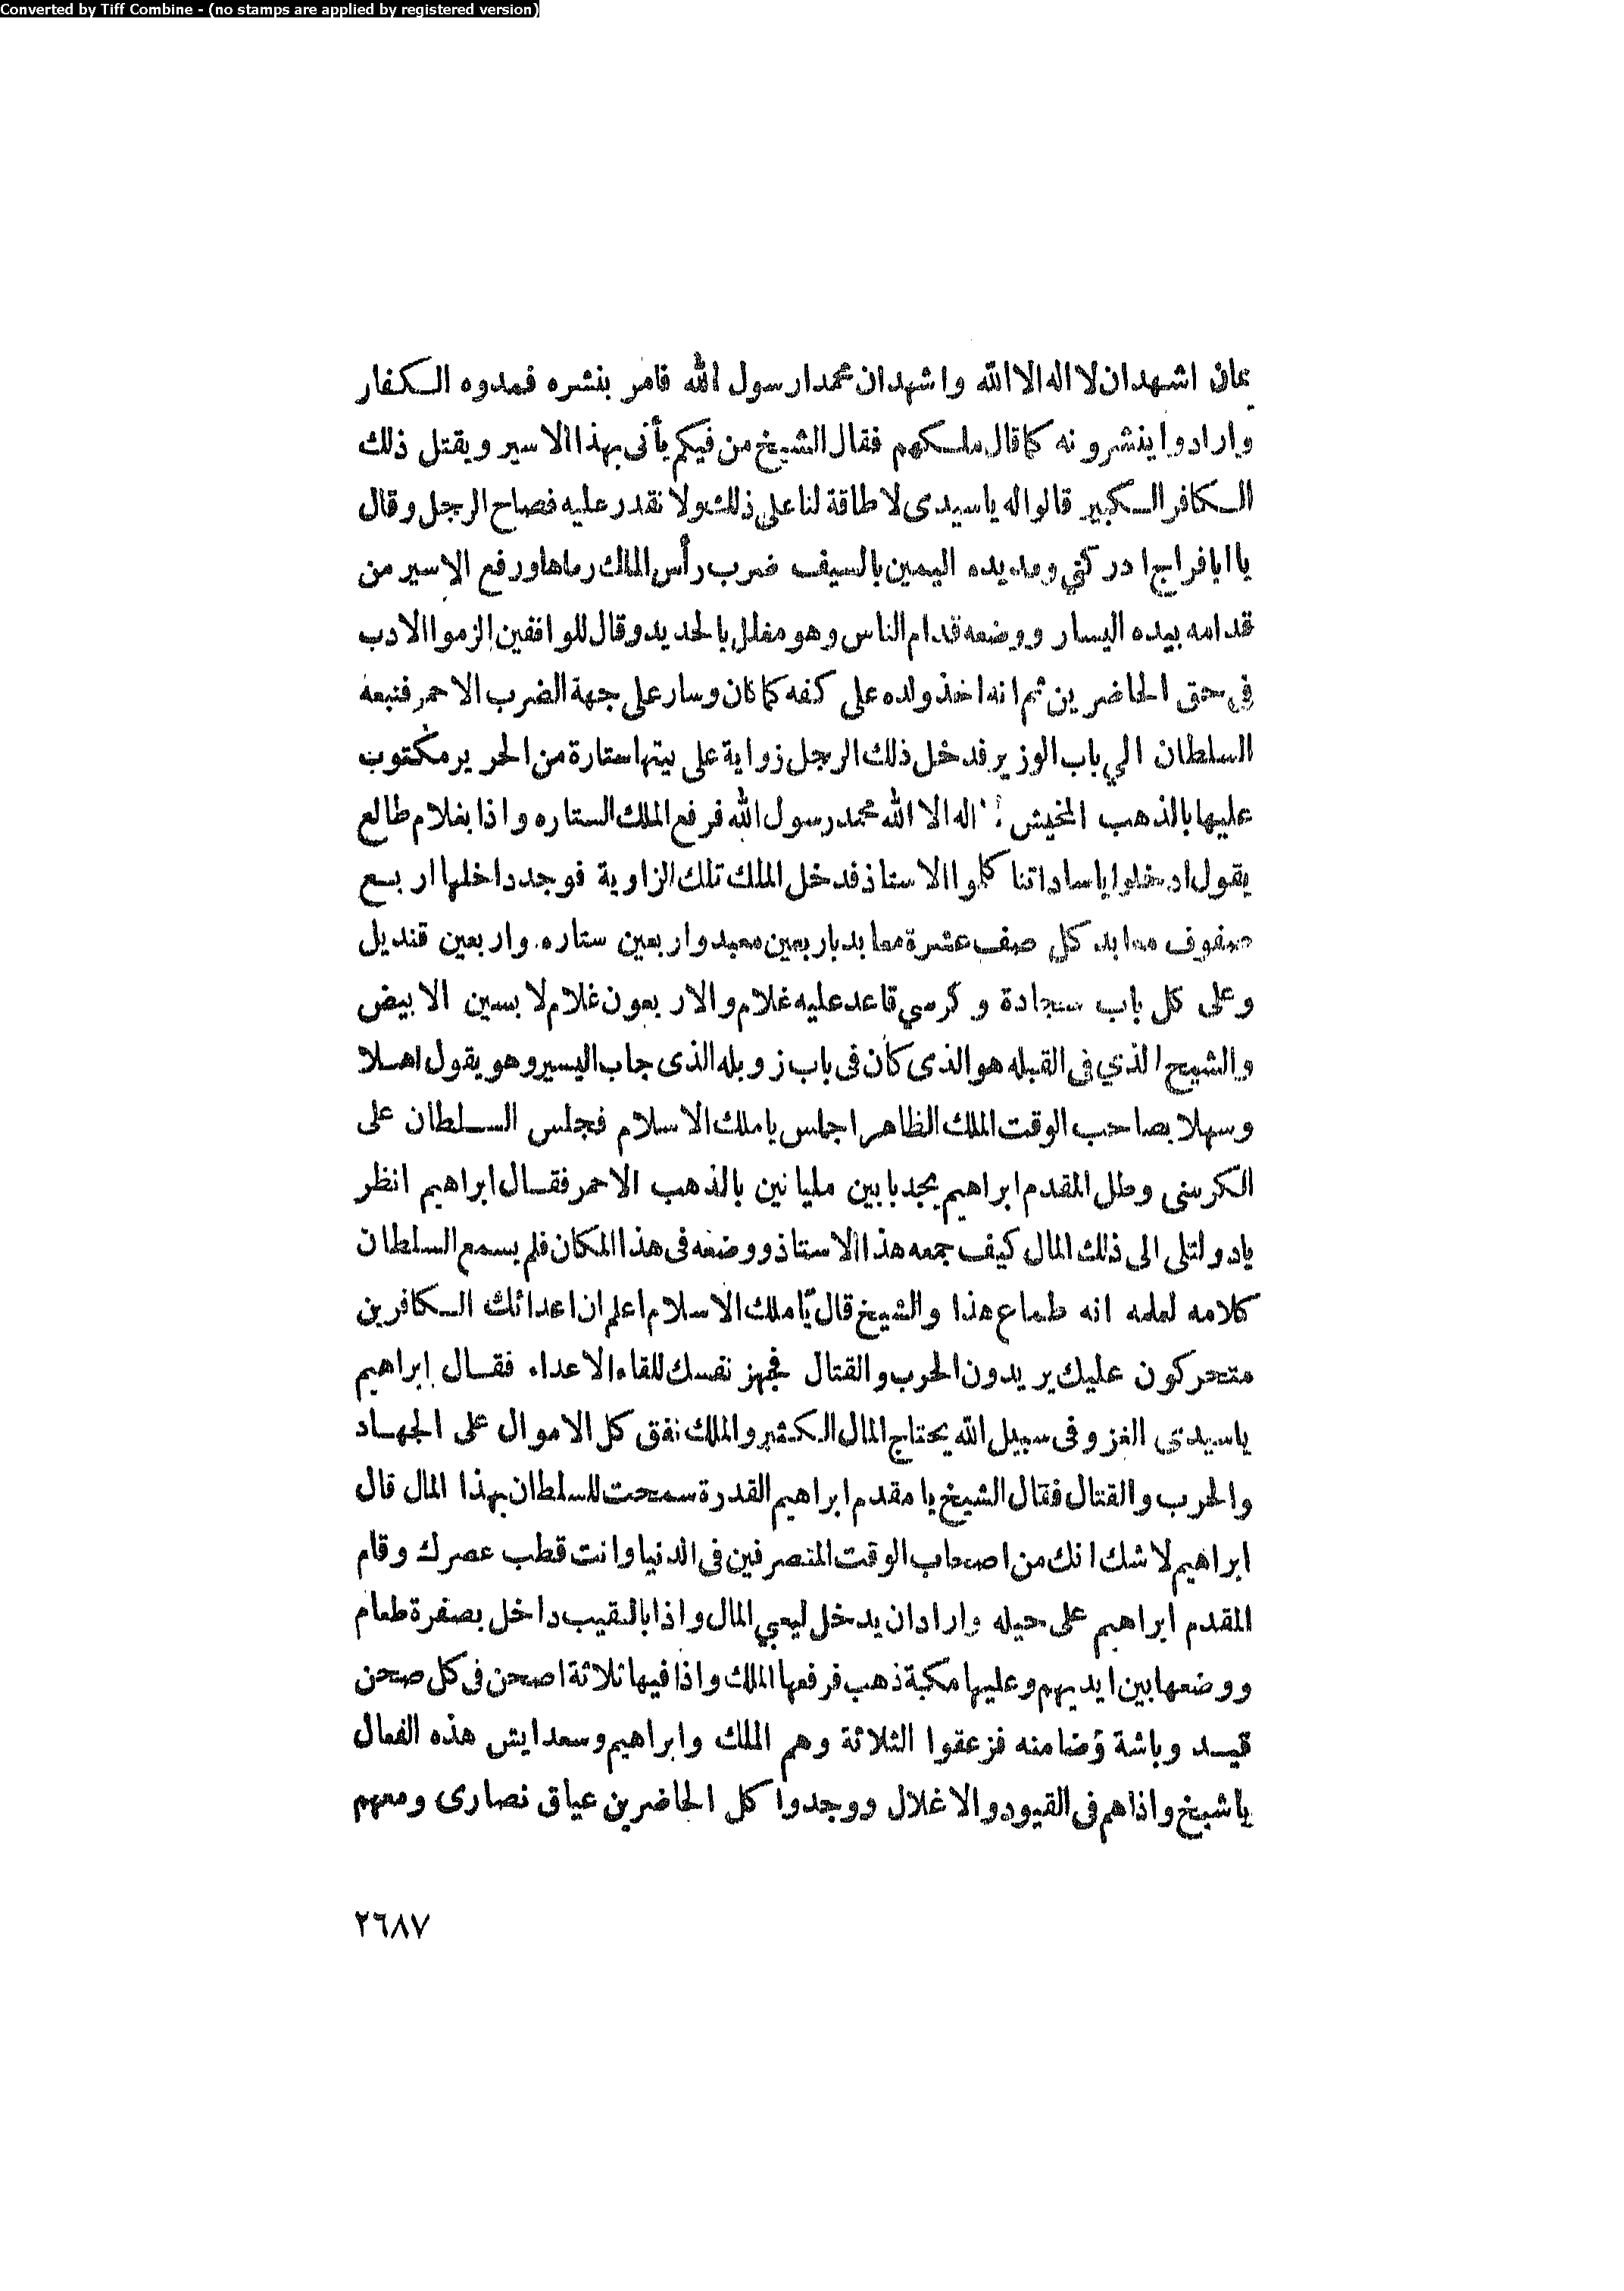 Converted by Tiff Combine - (no stamps are applied by registered version)
عان اشهد ان لا اله الا الله واشهد ان محمدا رسول الله فامر بنشره فمدوه الكفار
وارادوا ينشرونه كما قال ملكهم فقال الشيخ من فيكم يأتى بهذا الاسير ويقتل ذلك
الكافر الكبير قالوا له ياسيدى لا طاقة لنا على ذلك ولا نقدر عليه فصاح الرجل وقال
يا ابا فراج ادركني ومد يده اليمين بالسيف ضرب رأس الملك رماها ورفع الاسير من
قدامه بيده اليسار ووضعه قدام الناس وهو مغلل بالحديد وقال للواقفين إلزموا الادب
في حق الحاضرين ثم انه اخذ ولده على كفه كما كان وسار على جهة الضرب الاحمر فتبعه
السلطان الي باب الوزير فدخل ذلك الرجل زواية على بيتها ستارة من الحرير مكتوب
عليها بالذهب المخيش اله الا الله محمد رسول الله فرفع الملك الستاره واذا بغلام طالع
يقول ادخلوا ياساداتنا كلوا الاستاذ فدخل الملك تلك الزاوية فوجد داخلها اربع
صفوف معابد كل صف عشرة معابد باربعين معبد واربعين ستاره. واربعين قنديل
وعلى كل باب سجادة و كرسي قاعد عليه غلام والاربعون غلام لابسين الابيض
والشيخ الذي فى القبله هو الذى كان فى باب زويله الذى جاب اليسير وهو يقول اهلا
وسهلا بصاحب الوقت الملك الظاهر اجلس ياملك الاسلام فجلس السلطان على
الكرسى وطل المقدم ابراهيم يجد بابين مليانين بالذهب الاحمر فقال ابراهيم انظر
يادولتلى الى ذلك المال كيف جمعه هذا الاستاذ ووضعه فى هذا المكان فلم يسمع السلطان
كلامه لعلمه انه طماع هذا والشيخ قال يا ملك الاسلام اعلم ان اعدائك الكافرين
متحركون عليك يريدون الحرب والقتال فجهز نفسك للقاء الاعداء فقال إبراهيم
ياسيدى الغزو فى سبيل الله يحتاج المال الكثير والملك نفق كل الاموال على الجهاد
والحرب والقتال فقال الشيخ يا مقدم ابراهيم القدرة سمحت للسلطان بهذا المال قال
ابراهيم لاشك انك من اصحاب الوقت المتصرفين فى الدنيا وانت قطب عصرك وقام
المقدم ابراهيم على حيله وارادان يدخل ليعبي المال واذا بالنقيب داخل بصفرة طعام
ووضعها بين ايديهم وعليها مكبة ذهب فرفعها الملك واذا فيها ثلاثة اصحن فى كل صحن
قيد وباشة وضامنه فزعقوا الثلاثة وهم الملك وابراهيم وسعد ايش هذه الفعال
ياشيخ واذاهم فى القيود والاغلال ووجدوا كل الحاضرين عياق نصارى ومعهم
٢٦٨٧